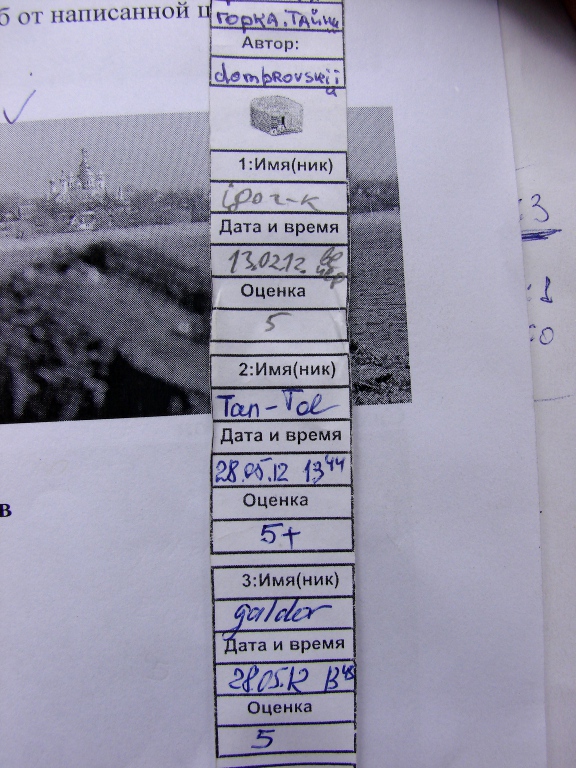 б от написанной
горка. Тайни
Автор:
dombrovskii
1:Имя(ник)
Дата и время
13.0212. ве чер
Оценка
5
2:Имя(ник)
Tan-Tol
Дата и время
28.05.12 13 44
Оценка
5+
3:Имя(ник)
galdor
Дата и время
28.05.12 13 45
Оценка
5
в